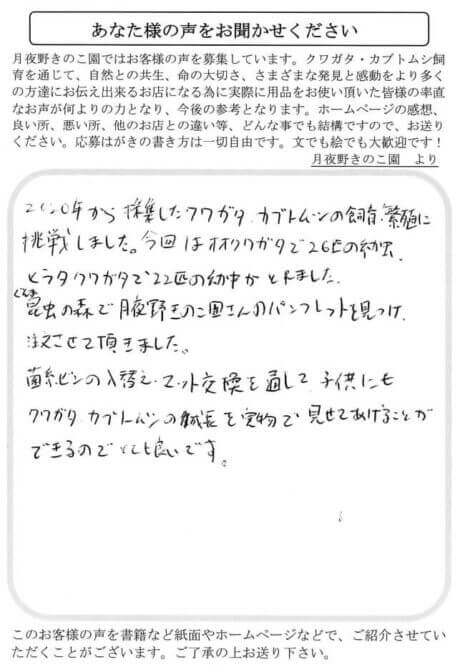 あなた様の声をお聞かせください
月夜野きのこ園ではお客様の声を募集しています。クワガタ・カブトムシ飼
育を通じて、自然との共生、命の大切さ、さまざまな発見と感動をより多く
の方達にお伝え出来るお店になる為に実際に用品をお使い頂いた皆様の率直
なお声が何よりの力となり、今後の参考となります。ホームページの感想、
良い所、悪い所、他のお店との違い等、どんな事でも結構ですので、お送り
ください。応募はがきの書き方は一切自由です。文でも絵でも大歓迎です！
月夜野きのこ園　より
2020年から 採集したクワガタ、カブトムシの飼育、繁殖に
挑戦しました。今回はオオクワガタで26匹の幼虫、
ヒラタクワガタで22匹の幼虫がとれました。
ぐんま
昆虫の森で月夜野きのこ園さんのパンフレットを見つけ、
注文させて頂きました。
菌糸ビンの入替え、マット交換を通して 子供にも
クワガタ カブトムシの成長を実物で見せてあげることが
できるのでとても良いです。
このお客様の声を書籍など紙面やホームページなどで、ご紹介させてい
ただくことがございます。ご了承の上お送り下さい。